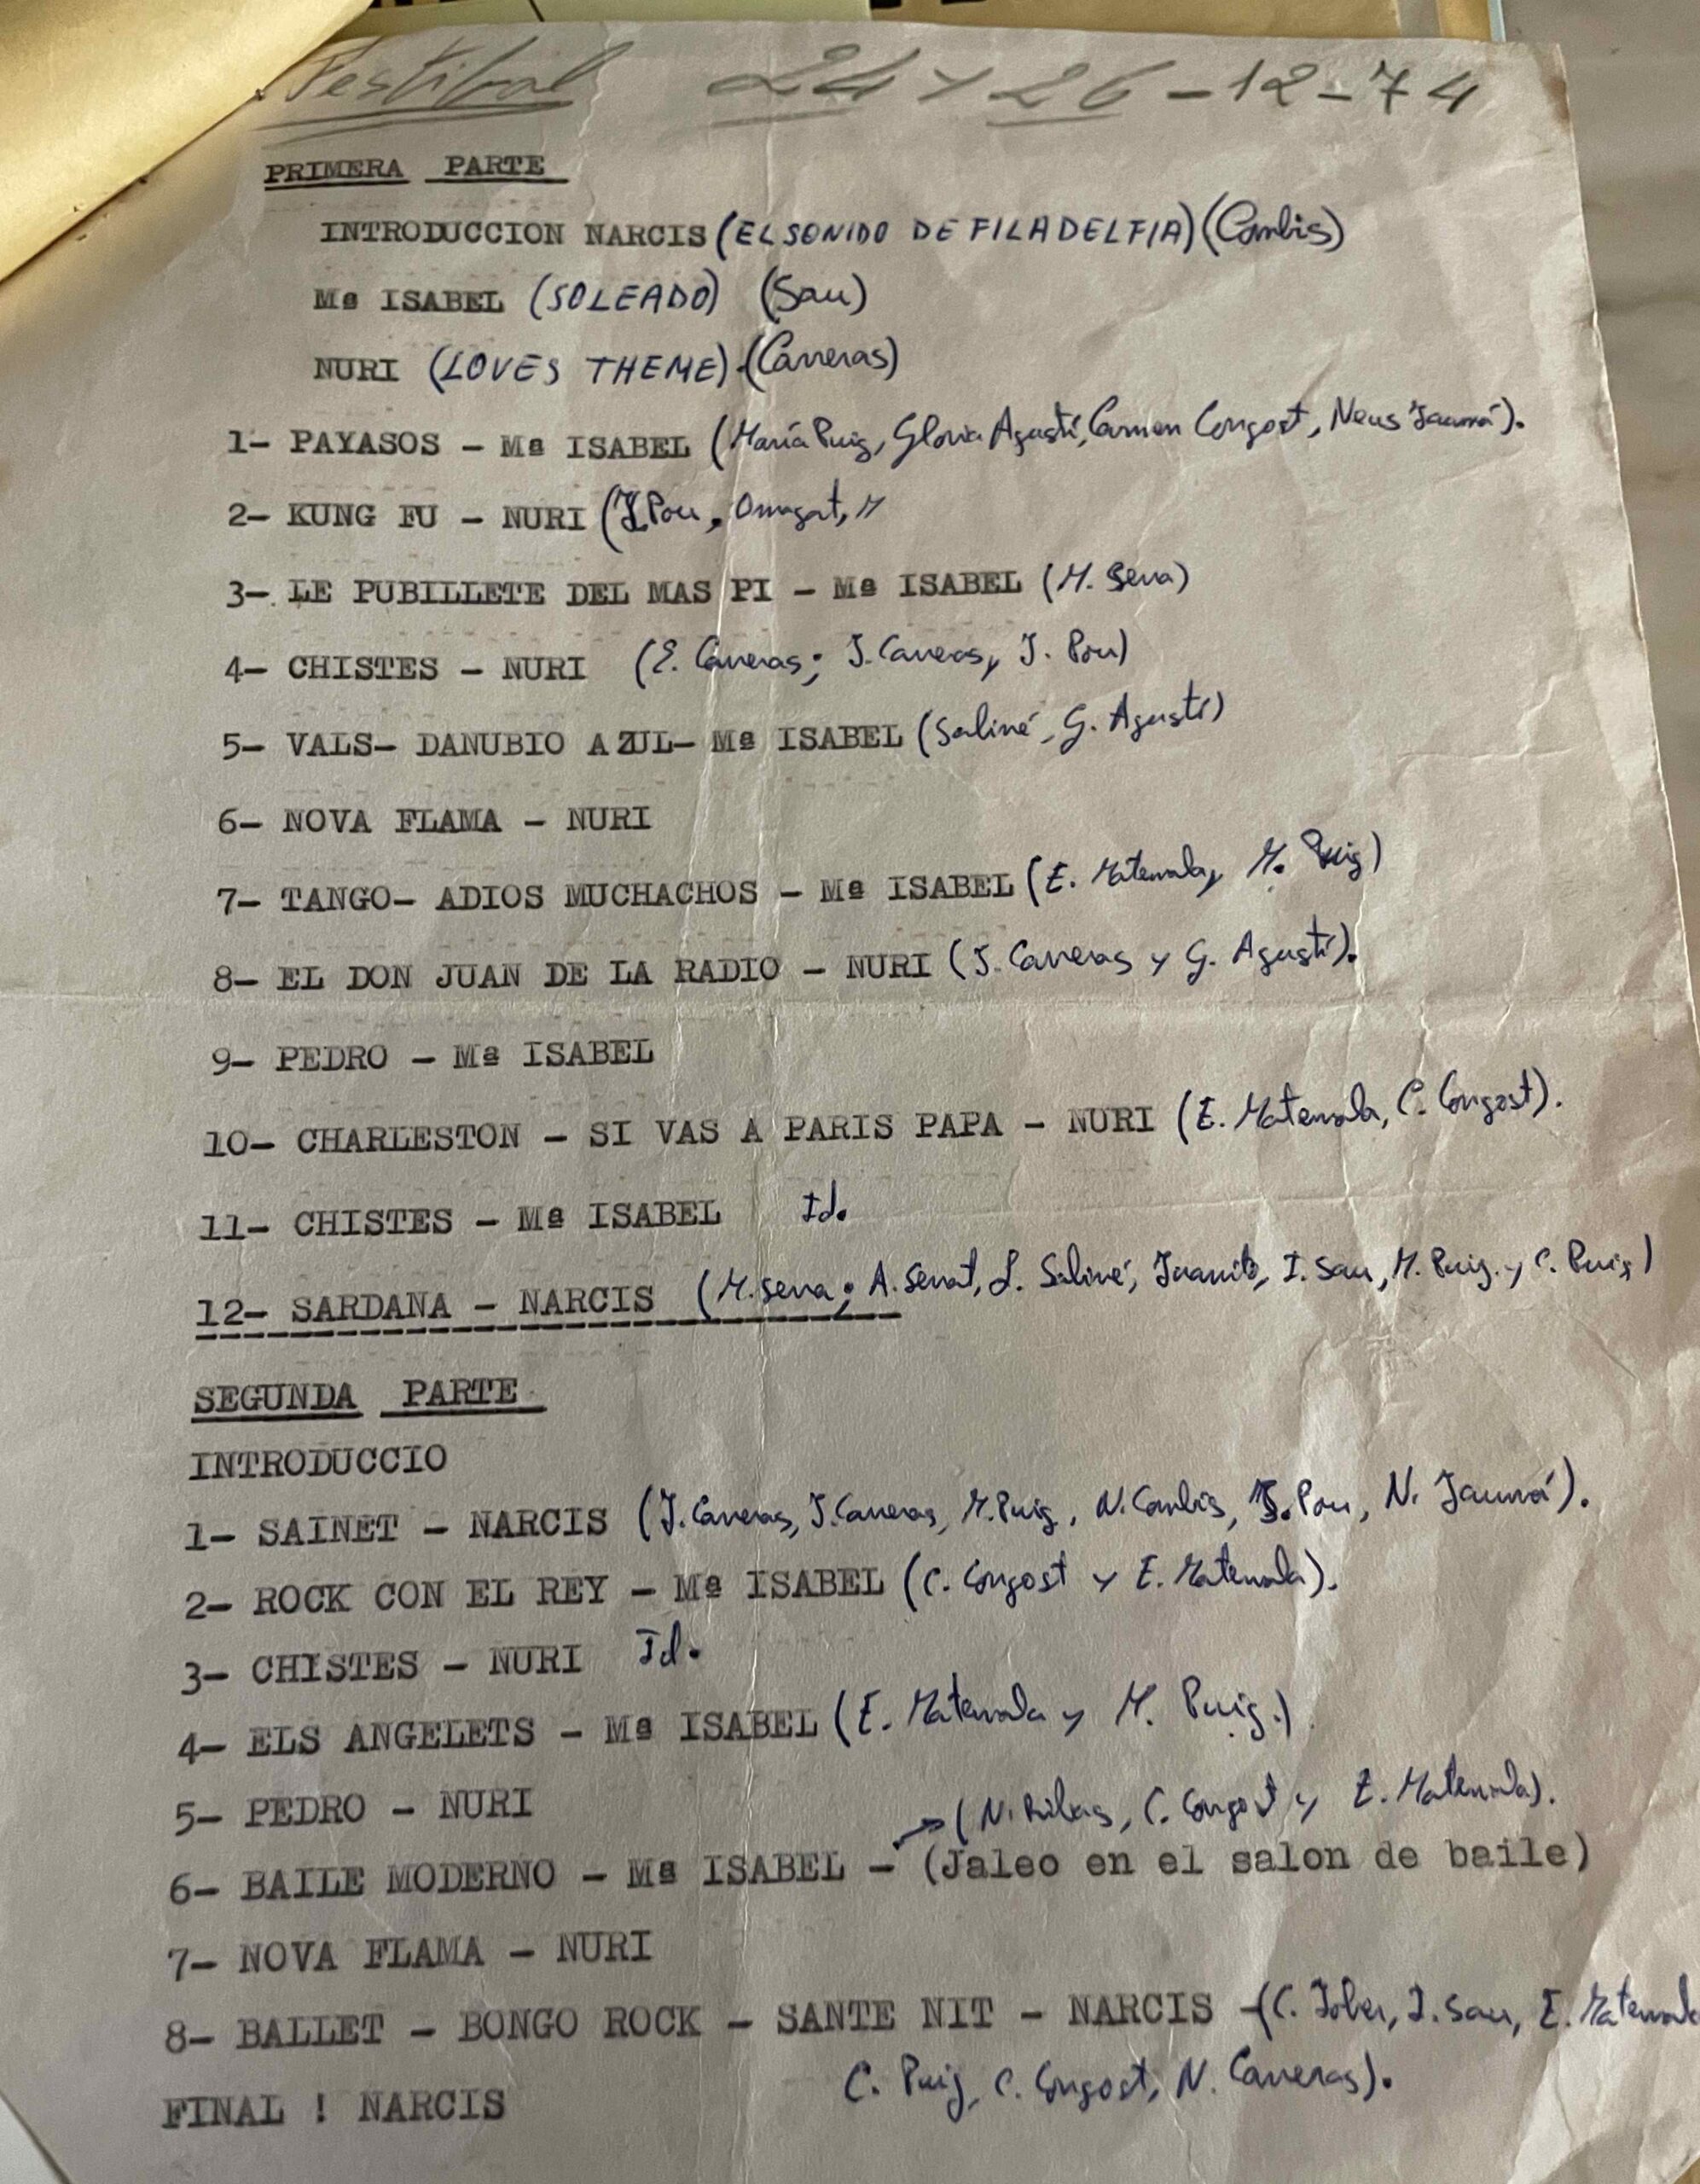 Festibal 24 y 26-12-74
PRIMERA PARTE
INTRODUCCION NARCIS (EL SONIDO DE FILADELFIA) (Cambis)
Mª ISABEL (SOLEADO) (Sau)
NURI (LOVES THEME) (Carreras)
1- PAYASOS - Mª ISABEL (María Puig, Gloria Agustí, Carmen Congost, Neus Jaumá).
2- KUNG FU - NURI (J. Pou, M
3- LE PUBILLETE DEL MAS PI - Mª ISABEL (M. Serra)
4- CHISTES - NURI (E. Carreras; J. Carreras, J. Pou)
5- VALS- DANUBIO AZUL- Mª ISABEL (Saliné, G. Agustí)
6- NOVA FLAMA - NURI
7- TANGO- ADIOS MUCHACHOS - Mª ISABEL (E. Matemala, M. Puig)
8- EL DON JUAN DE LA RADIO - NURI (J. Carreras y G. Agustí).
9- PEDRO - Mª ISABEL
10- CHARLESTON - SI VAS A PARIS PAPA - NURI (E. Matemala, C. Congost).
11- CHISTES - Mª ISABEL Id.
12- SARDANA - NARCIS (M. Serra; A. Serrat, L. Saliné, Juanito, I. Sau, M. Puig. y C. Puig)
SEGUNDA PARTE
INTRODUCCIO
1- SAINET - NARCIS (J. Carreras, J. Carreras, M. Puig, N. Cambis, J. Pou, N. Jaumá).
2- ROCK CON EL REY - Mª ISABEL (C. Congost y E. Matemala).
3- CHISTES - NURI Id.
4- ELS ANGELETS - Mª ISABEL (E. Matemala y M. Puig.)
5- PEDRO - NURI
(N. Ribas, C. Congost y E. Matemala).
6- BAILE MODERNO - Mª ISABEL - (Jaleo en el salon de baile)
7- NOVA FLAMA - NURI
8- BALLET - BONGO ROCK - SANTE NIT - NARCIS - (C. Jober, I. Sau, E. Matemala
C. Puig, C. Congost, N. Carreras).
FINAL ! NARCIS